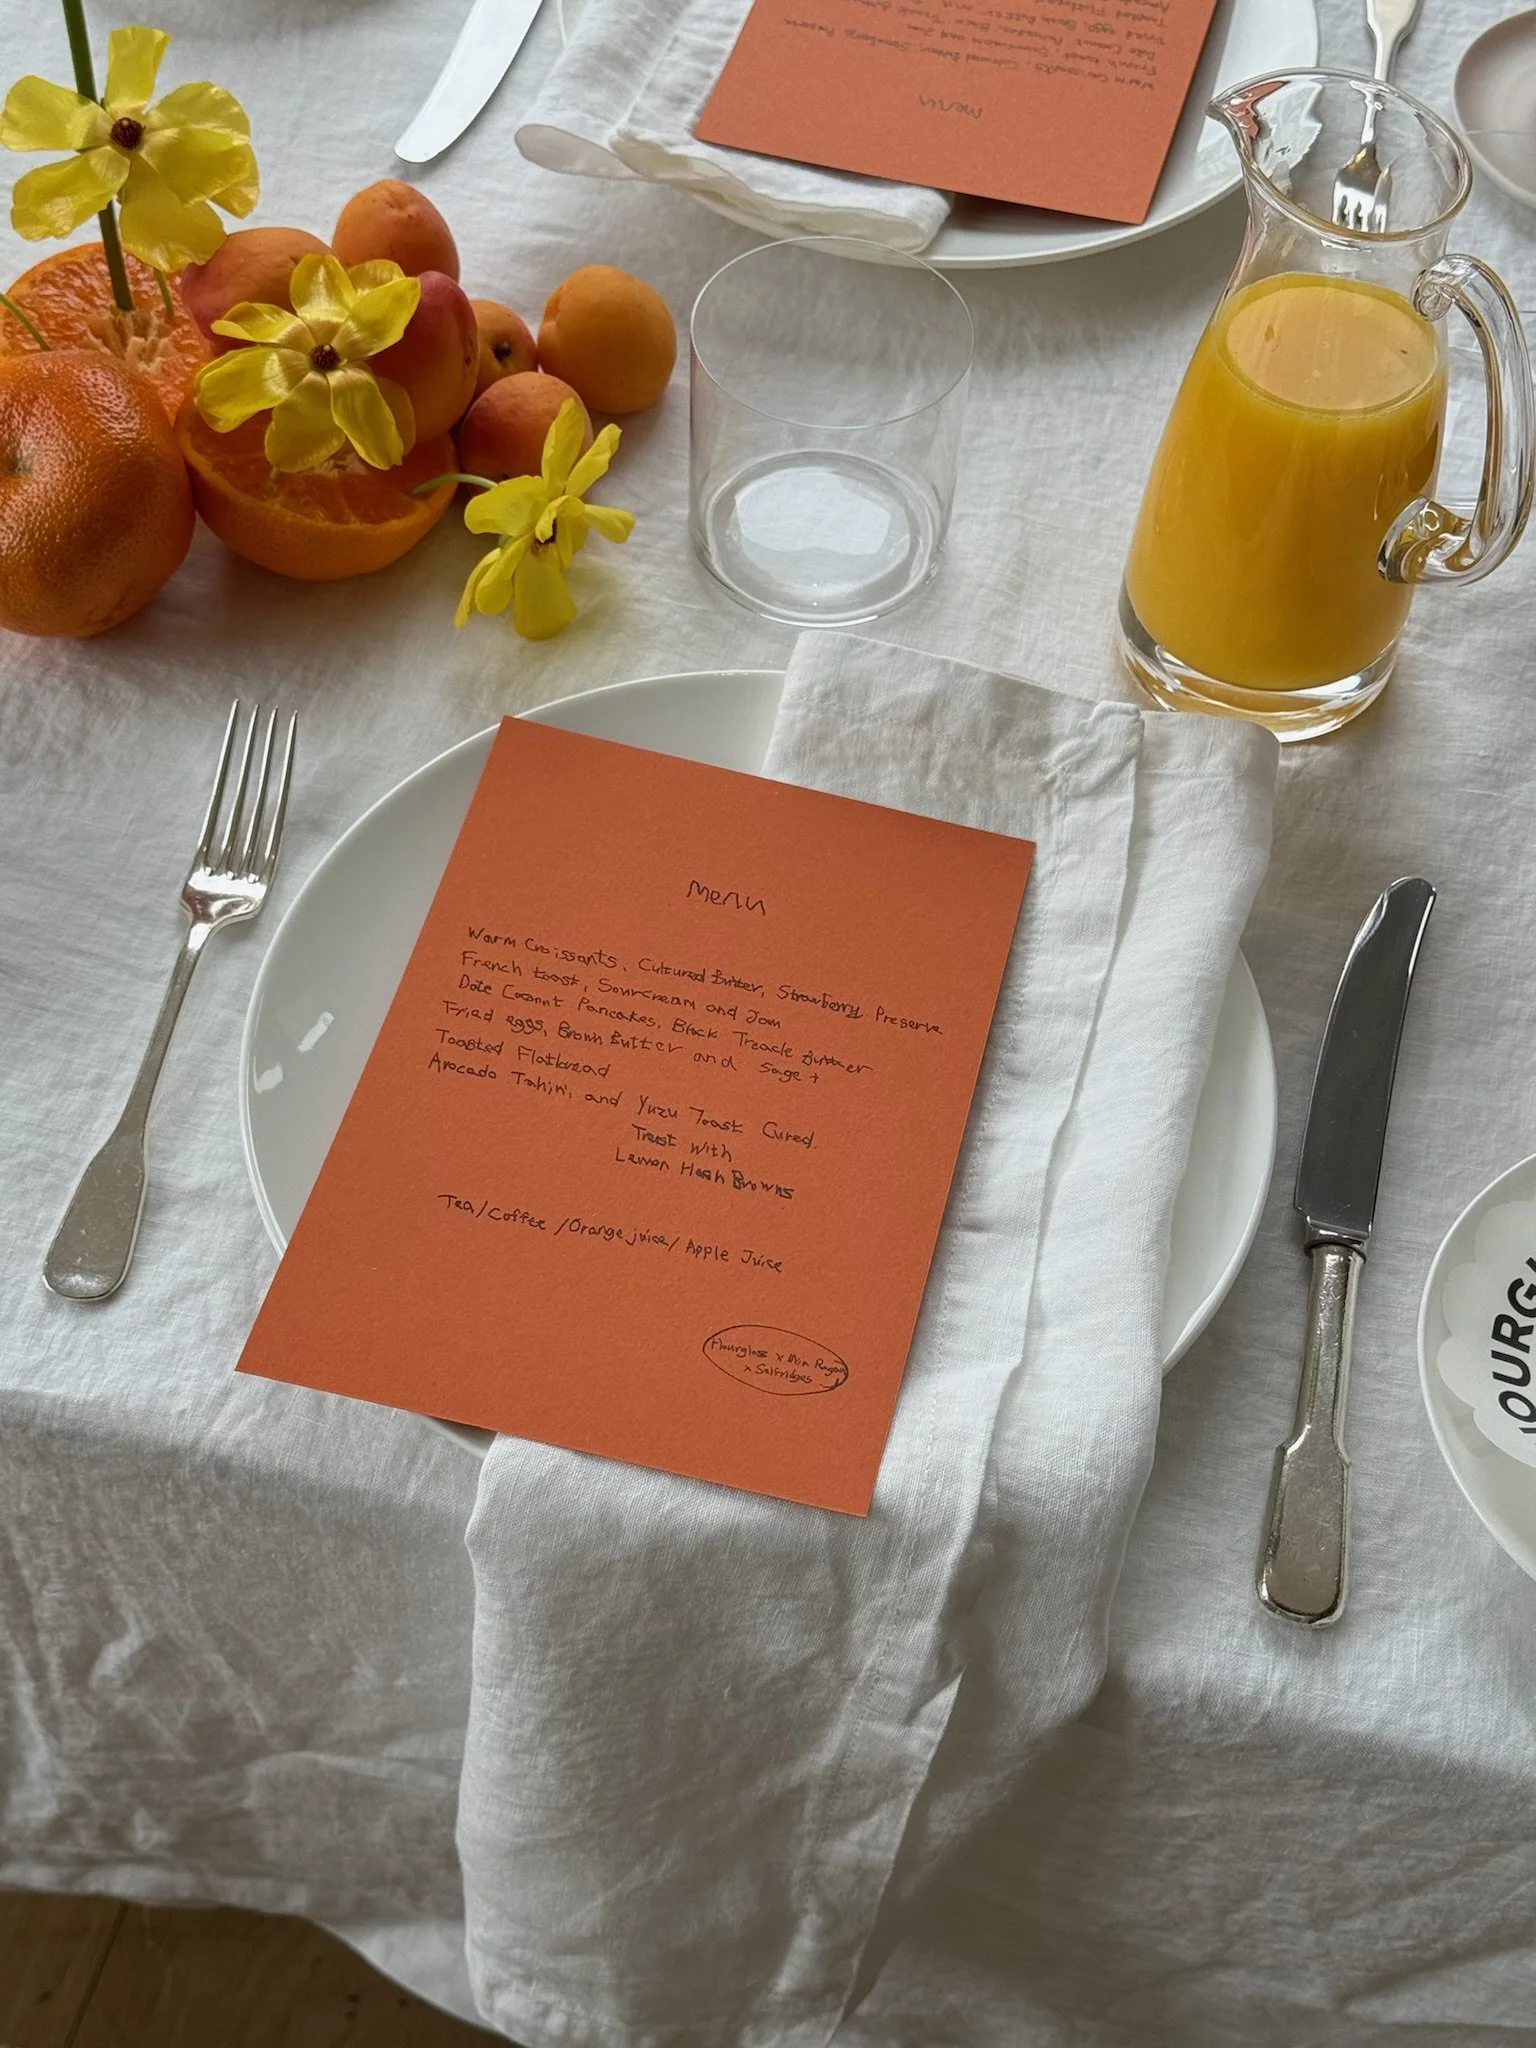 Menu
Warm Croissants, Cultured Butter, Strawberry Preserve
French toast, Sourcream and Jam
Date Coconut Pancakes, Black Treacle Butter
Fried eggs, Brown Butter and Sage +
Toasted Flatbread
Avocado Tahini, and Yuzu Toast Cured.
Trust with
Lemon Hash Browns
Tea/Coffee/Orange juice/Apple Juice
Hourglass x
x Selfridges
Menu
Warm Croissants, Cultured Butter, Strawberry Preserve
French toast, Sourcream and Jam
Date Coconut Pancakes, Black Treacle
OURG